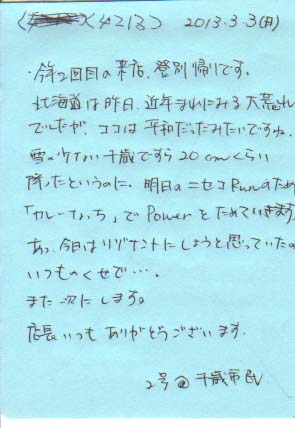 〈4213〉 2013.3.3(月)
・今年2回目の来店、登別帰りです。
北海道は昨日、近年まれにみる大荒れ
でしたが、ココは平和だったみたいですね。
雪の少ない千歳ですら20cmくらい
降ったというのに。明日のニセコRunのため
「カレーなっち」でPowerをためていきます
あっ、今日はリゾナントにしようと思っていたの
いつものくせで…。
また次にします。
店長いつもありがとうございます。
2号@千歳市民